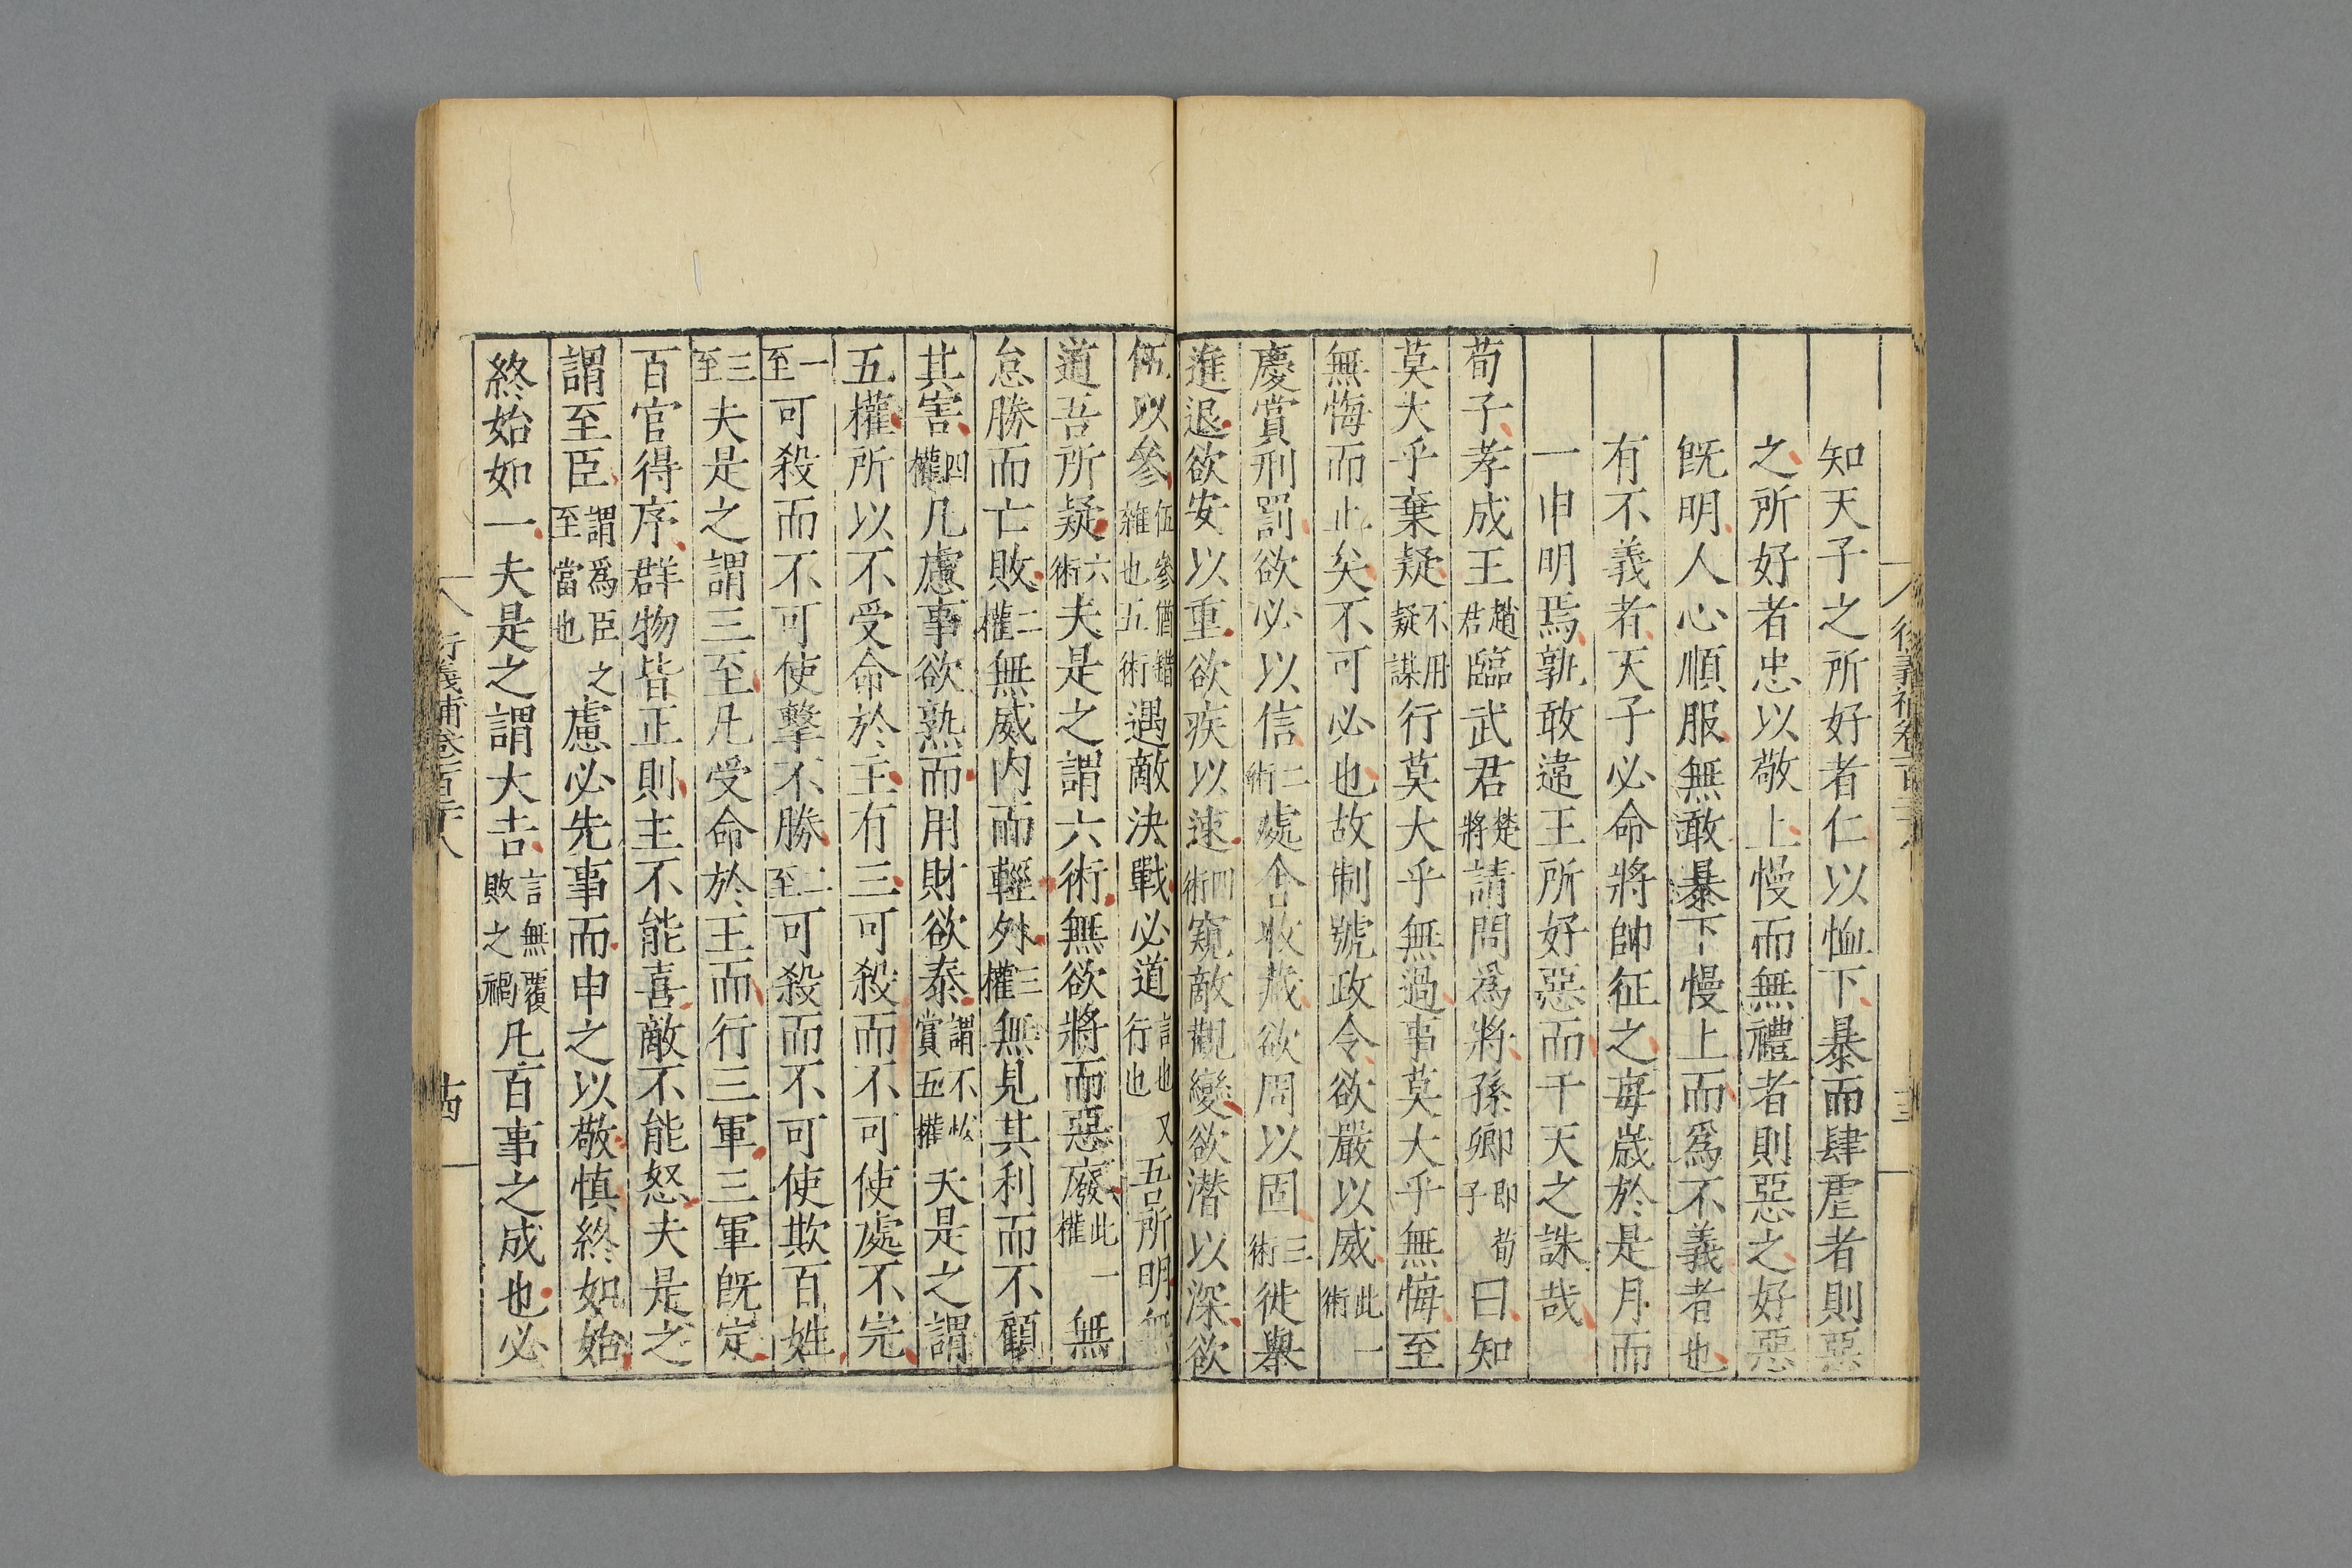 知天子之所好者仁以恤下暴而肆虐者則惡
之所好者忠以敬上慢而無禮者則惡之好惡
旣明人心順服無敢暴下慢上而爲不義者也
有不義者天子必命將帥征之每歲於是月而
一申明焉孰敢違王所好惡而干天之誅哉
荀子孝成王趙君臨武君楚將請問爲將孫卿卽荀子曰知
莫大乎棄疑不用疑謀行莫大乎無過事莫大乎無悔至
無悔而止矣不可必也故制號政令欲嚴以威此一術
慶賞刑罰欲必以信二術處舍收藏欲周以固三術徙舉
進退欲安以重欲疾以速四術窺敵觀變欲潛以深欲
伍以參伍參猶錯雜也五術遇敵決戰必道言也又行也吾所明無
道吾所疑六術夫是之謂六術無欲將而惡廢此一權無
怠勝而亡敗二權無威內而輕外三權無見其利而不顧
其害四權凡慮事欲熟而用財欲泰謂不吝賞五權夫是之謂
五權所以不受命於主有三可殺而不可使處不完
一至可殺而不可使擊不勝二至可殺而不可使欺百姓
三至夫是之謂三至凡受命於王而行三軍三軍旣定
百官得序群物皆正則主不能喜敵不能怒夫是之
謂至臣謂爲臣之至當也慮必先事而申之以敬慎終如始
終始如一夫是之謂大吉言無覆敗之禍凡百事之成也必
衍義補卷一百二十八